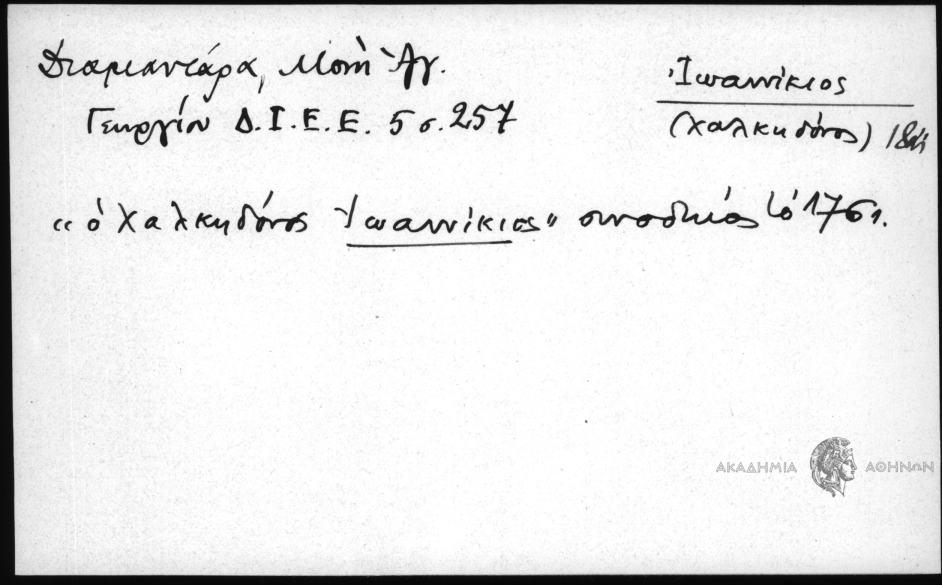 Διαμαντάρα, Μονὴ Ἁγ.
Γεωργίου Δ.Ι.Ε.Ε. 5 σ. 257
Ἰωαννίκιος
(Χαλκηδόνος)
« ὁ Χαλκηδόνος Ἰωαννίκιος» συνοδικός τὸ 1761.
ΑΚΑΔΗΜΙΑ ΑΘΗΝΩΝ